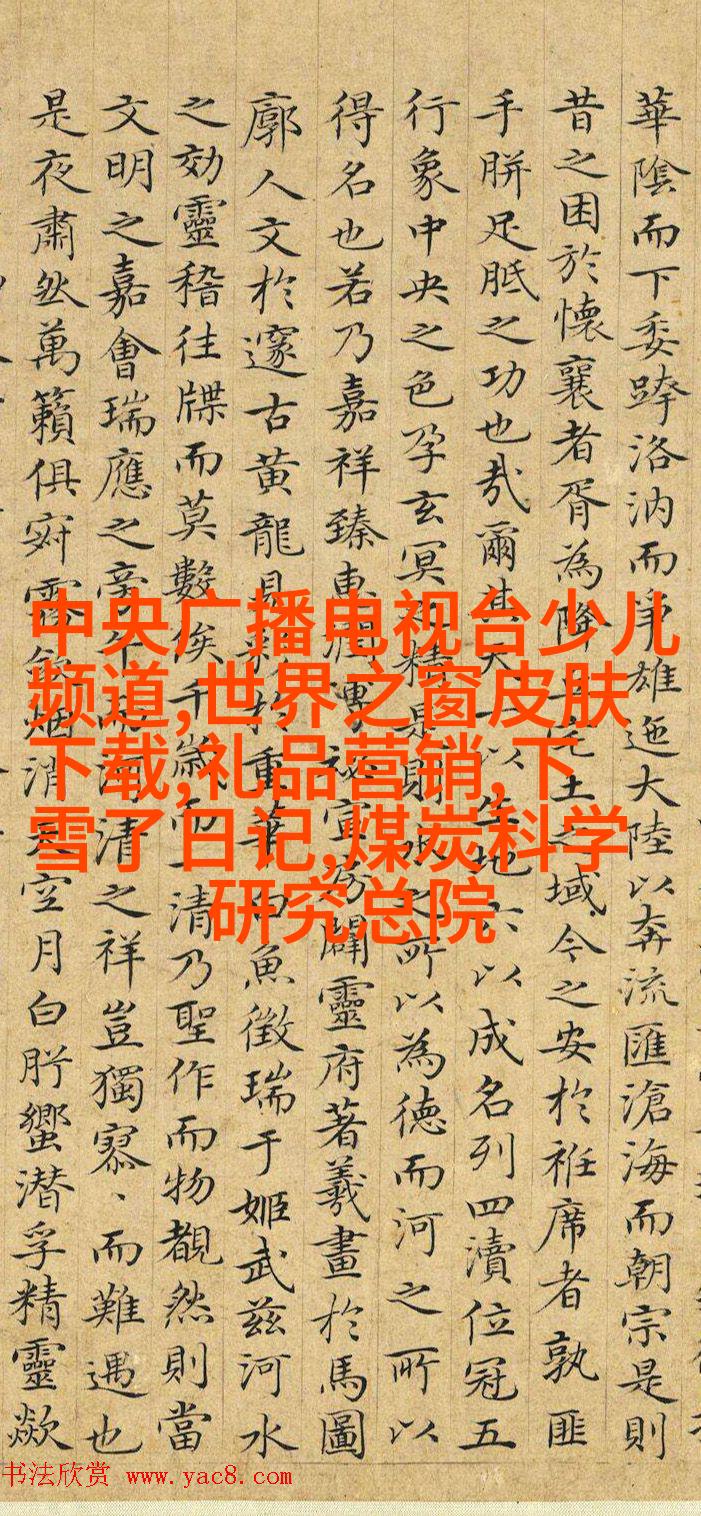 華陰而下委跨洛汭而爭雄迤大陸以奔流匯滄海而朝宗是則
昔之困於懷襄者胥為降丘宅土之域今之安於袵席者孰匪
手胼足胝之功也哉爾其天一以生地六以成名列四瀆位冠五
行象中央之色孕玄冥精是則水之所以為德而河之所以
得名也若乃嘉祥臻惠宣闢靈府著羲畫於馬圖
廓人文於邃古黃龍見於重華白魚徵瑞于姬武茲河水
之効靈稽往牒而莫數俟千歲而一清乃聖作而物覩然則當
文明之嘉會瑞應之旁午而河清之祥豈獨寥、而難遇也
是夜肅然萬籟俱寂露飲烟消天空月白肸蠁潛孚精靈歘
中央广播电视台少儿
频道,世界之窗皮肤
下载,礼品营销,下
雪了日记,煤炭科学
研究总院
书法欣赏 www.yac8.com